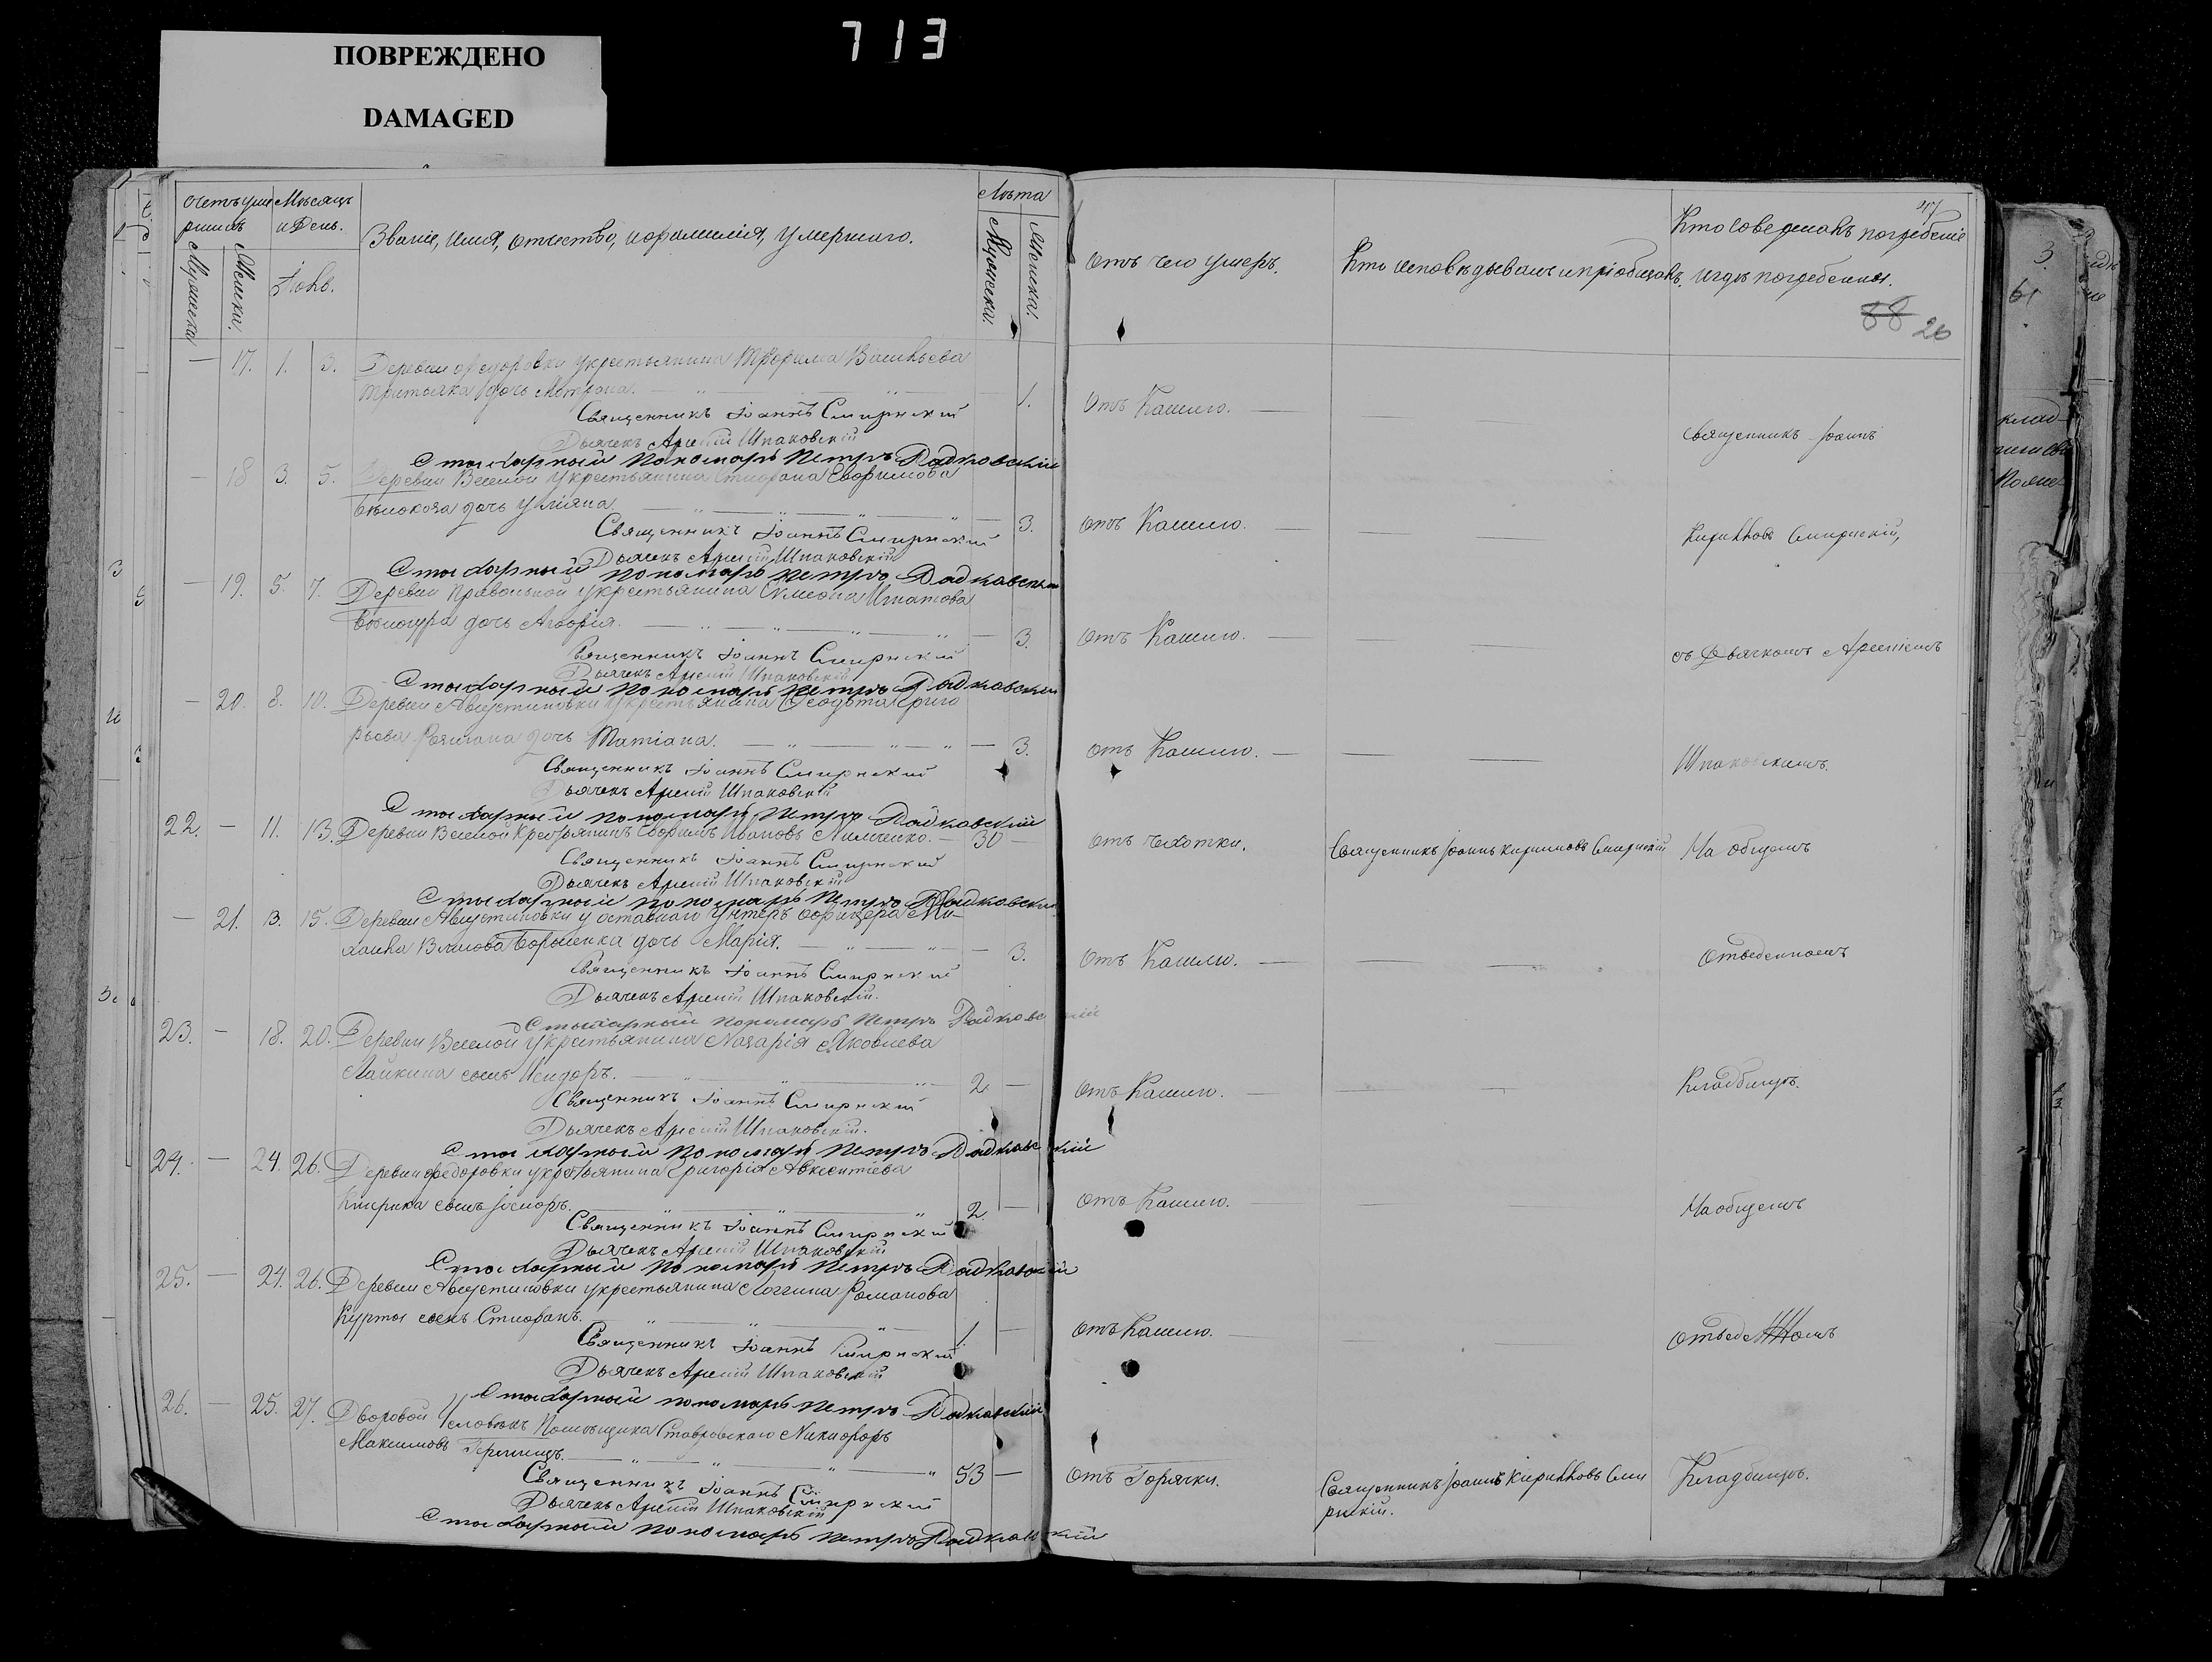 713
ПОВРЕЖДЕНО
DAMAGED
Счетъ умершихъ
Мужеска
Женска.
Мѣсяцъ и День.
Іюнь.
Званіе, имя, отчество, и фамилія, умершаго.
Лѣта
Мужеска.
Женска.
Отъ чего умеръ.
Кто исповѣдывалъ и пріобщалъ.
47
Кто совершалъ погребеніе
и гдѣ погребены.
88 26
— 17. 1. 3. Деревни Федоровки у крестьянина Трофима Васильева
дочь 1. Отъ Кашлю. — Священникъ Іоаннъ
Священникъ Іоаннъ Смирнскій
Дьячекъ Арсеній Шпаковскій
Стихарный пономарь Петръ Радковскій
— 18 3. 5. Деревни Веселой у крестьянина Стефана Евфимова
дочь Уліяна. 3. Отъ Кашлю. — Кирилловъ Смирнскій,
Священникъ Іоаннъ Смирнскій
Дьячекъ Арсеній Шпаковскій
Стихарный пономарь Петръ Радковскій
— 19. 5. 7. Деревни Привольной у крестьянина Симеона Игнатова
дочь 3. Отъ Кашлю. — съ Дьячкомъ Арсеніемъ
Священникъ Іоаннъ Смирнскій
Дьячекъ Арсеній Шпаковскій
Стихарный пономарь Петръ Радковскій
— 20. 8. 10. Деревни Августиновки у крестьянина Ѳеодота Григо
рьева дочь Татіана. 3. Отъ Кашлю. — Шпаковскимъ.
Священникъ Іоаннъ Смирнскій
Дьячекъ Арсеній Шпаковскій
Стихарный пономарь Петръ Радковскій
22. — 11. 13. Деревни Веселой Крестьянинъ Евфимъ Ивановъ — 30 — Отъ чехотки. Священникъ Іоаннъ Кирилловъ Смирнскій На общемъ
Священникъ Іоаннъ Смирнскій
Дьячекъ Арсеній Шпаковскій
Стихарный пономарь Петръ Радковскій
— 21. 13. 15. Деревни Августиновки у отставнаго унтеръ офицера Ми-
хаила дочь Марія. 3. Отъ Кашлю. — Отведенномъ
Священникъ Іоаннъ Смирнскій
Дьячекъ Арсеній Шпаковскій.
Стихарный пономарь Петръ Радковскій
23. — 18. 20. Деревни Веселой у крестьянина Назарія Яковлева
сынъ Исидоръ. 2 — Отъ Кашлю. — Кладбищѣ.
Священникъ Іоаннъ Смирнскій
Дьячекъ Арсеній Шпаковскій.
Стихарный пономарь Петръ Радковскій
24. — 24. 26. Деревни Федоровки у крестьянина Григорія Авксентіева
сынъ 2. — Отъ Кашлю. — На общемъ
Священникъ Іоаннъ Смирнскій
Дьячекъ Арсеній Шпаковскій
Стихарный пономарь Петръ Радковскій
25. — 24. 26. Деревни Августиновки у крестьянина Логгина Романова
Курты сынъ Стефанъ. 1 — Отъ Кашлю. — Отведенномъ
Священникъ Іоаннъ Смирнскій
Дьячекъ Арсеній Шпаковскій
Стихарный пономарь Петръ Радковскій
26. — 25. 27. Дворовой Человѣкъ Помѣщика Ставровскаго Никифоръ
Максимовъ 53 — Отъ Горячки. Священникъ Іоаннъ Кирилловъ Сми Кладбищѣ.
рнскій.
Священникъ Іоаннъ Смирнскій
Дьячекъ Арсеній Шпаковскій
Стихарный пономарь Петръ Радковскій